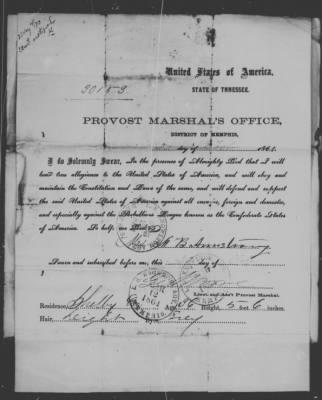 30153
United States of America,
STATE OF TNNESSEE.
PROVOST MARSHAL'S OFFICE,
DISTRICT OF MEMPHIS,
day of 186
I do Solemnly Swear, In the presence of Almighty God that I will
bear true allegiance to the United States of America, and will obey and
maintain the Constitution and Laws of the same, and will defend and support
the said United States of America against all enemies, foreign and domestic,
and especially against the Rebellious League known as the Confederate States
of America. So help me God:
B Armstrong
Sworn and subscribed before me, this day of
Lieut. and Ass't Provost Marshal.
Residence, Shelby Age, Height, 5 feet 6 inches.
Hair, Light Grey